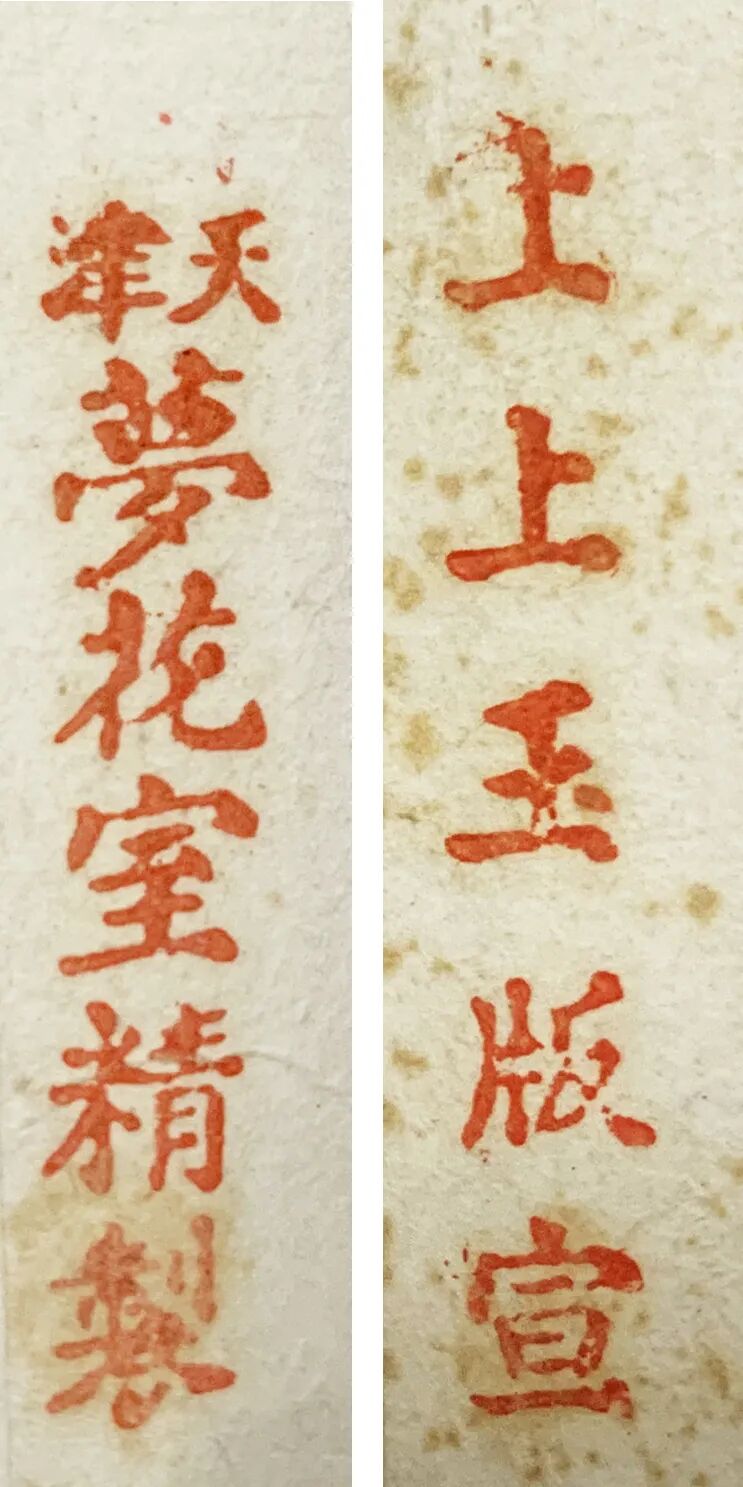 上上玉版宣
天津夢花室精製